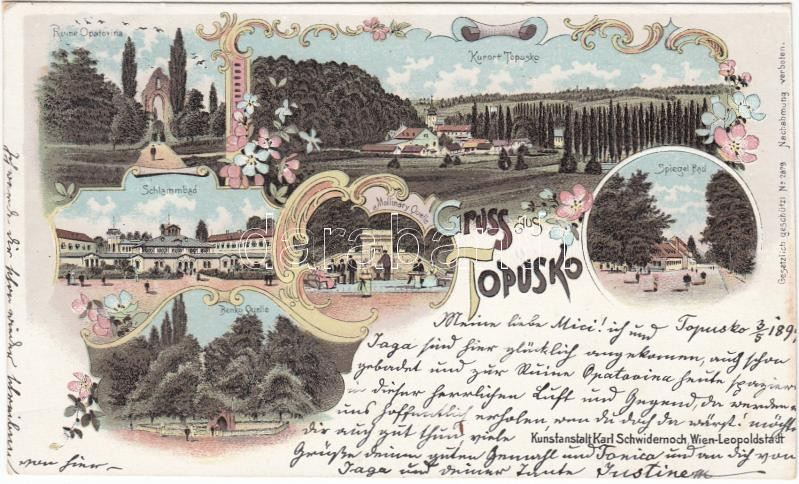 Ruine Opatovina
Kurort Topusko
Schlammbad
Mollinary Quelle
Spiegel Bad
Benko Quelle
Gruss aus
Topusko
darabanth
Gesetzlich geschützt No 2879 Nachahmung verboten.
Meine liebe Mici! ich und Topusko 3/5 189
Jaga sind hier glücklich angekommen, auch schon
gebadet und zur Ruine Opatovina heute spazieren
in dieser herrlichen Luft und Gegend, da werden
uns hoffentlich erholen, wen du doch da wärst! möchte
dir auch gut thun, viele
Kunstanstalt Karl Schwidernoch, Wien-Leopoldstadt
Grüße deinem guten Gemahl und Tonica und an dich von
Jaga und deiner Tante Justine
Ich werde dir schon wieder schreiben
von hier –